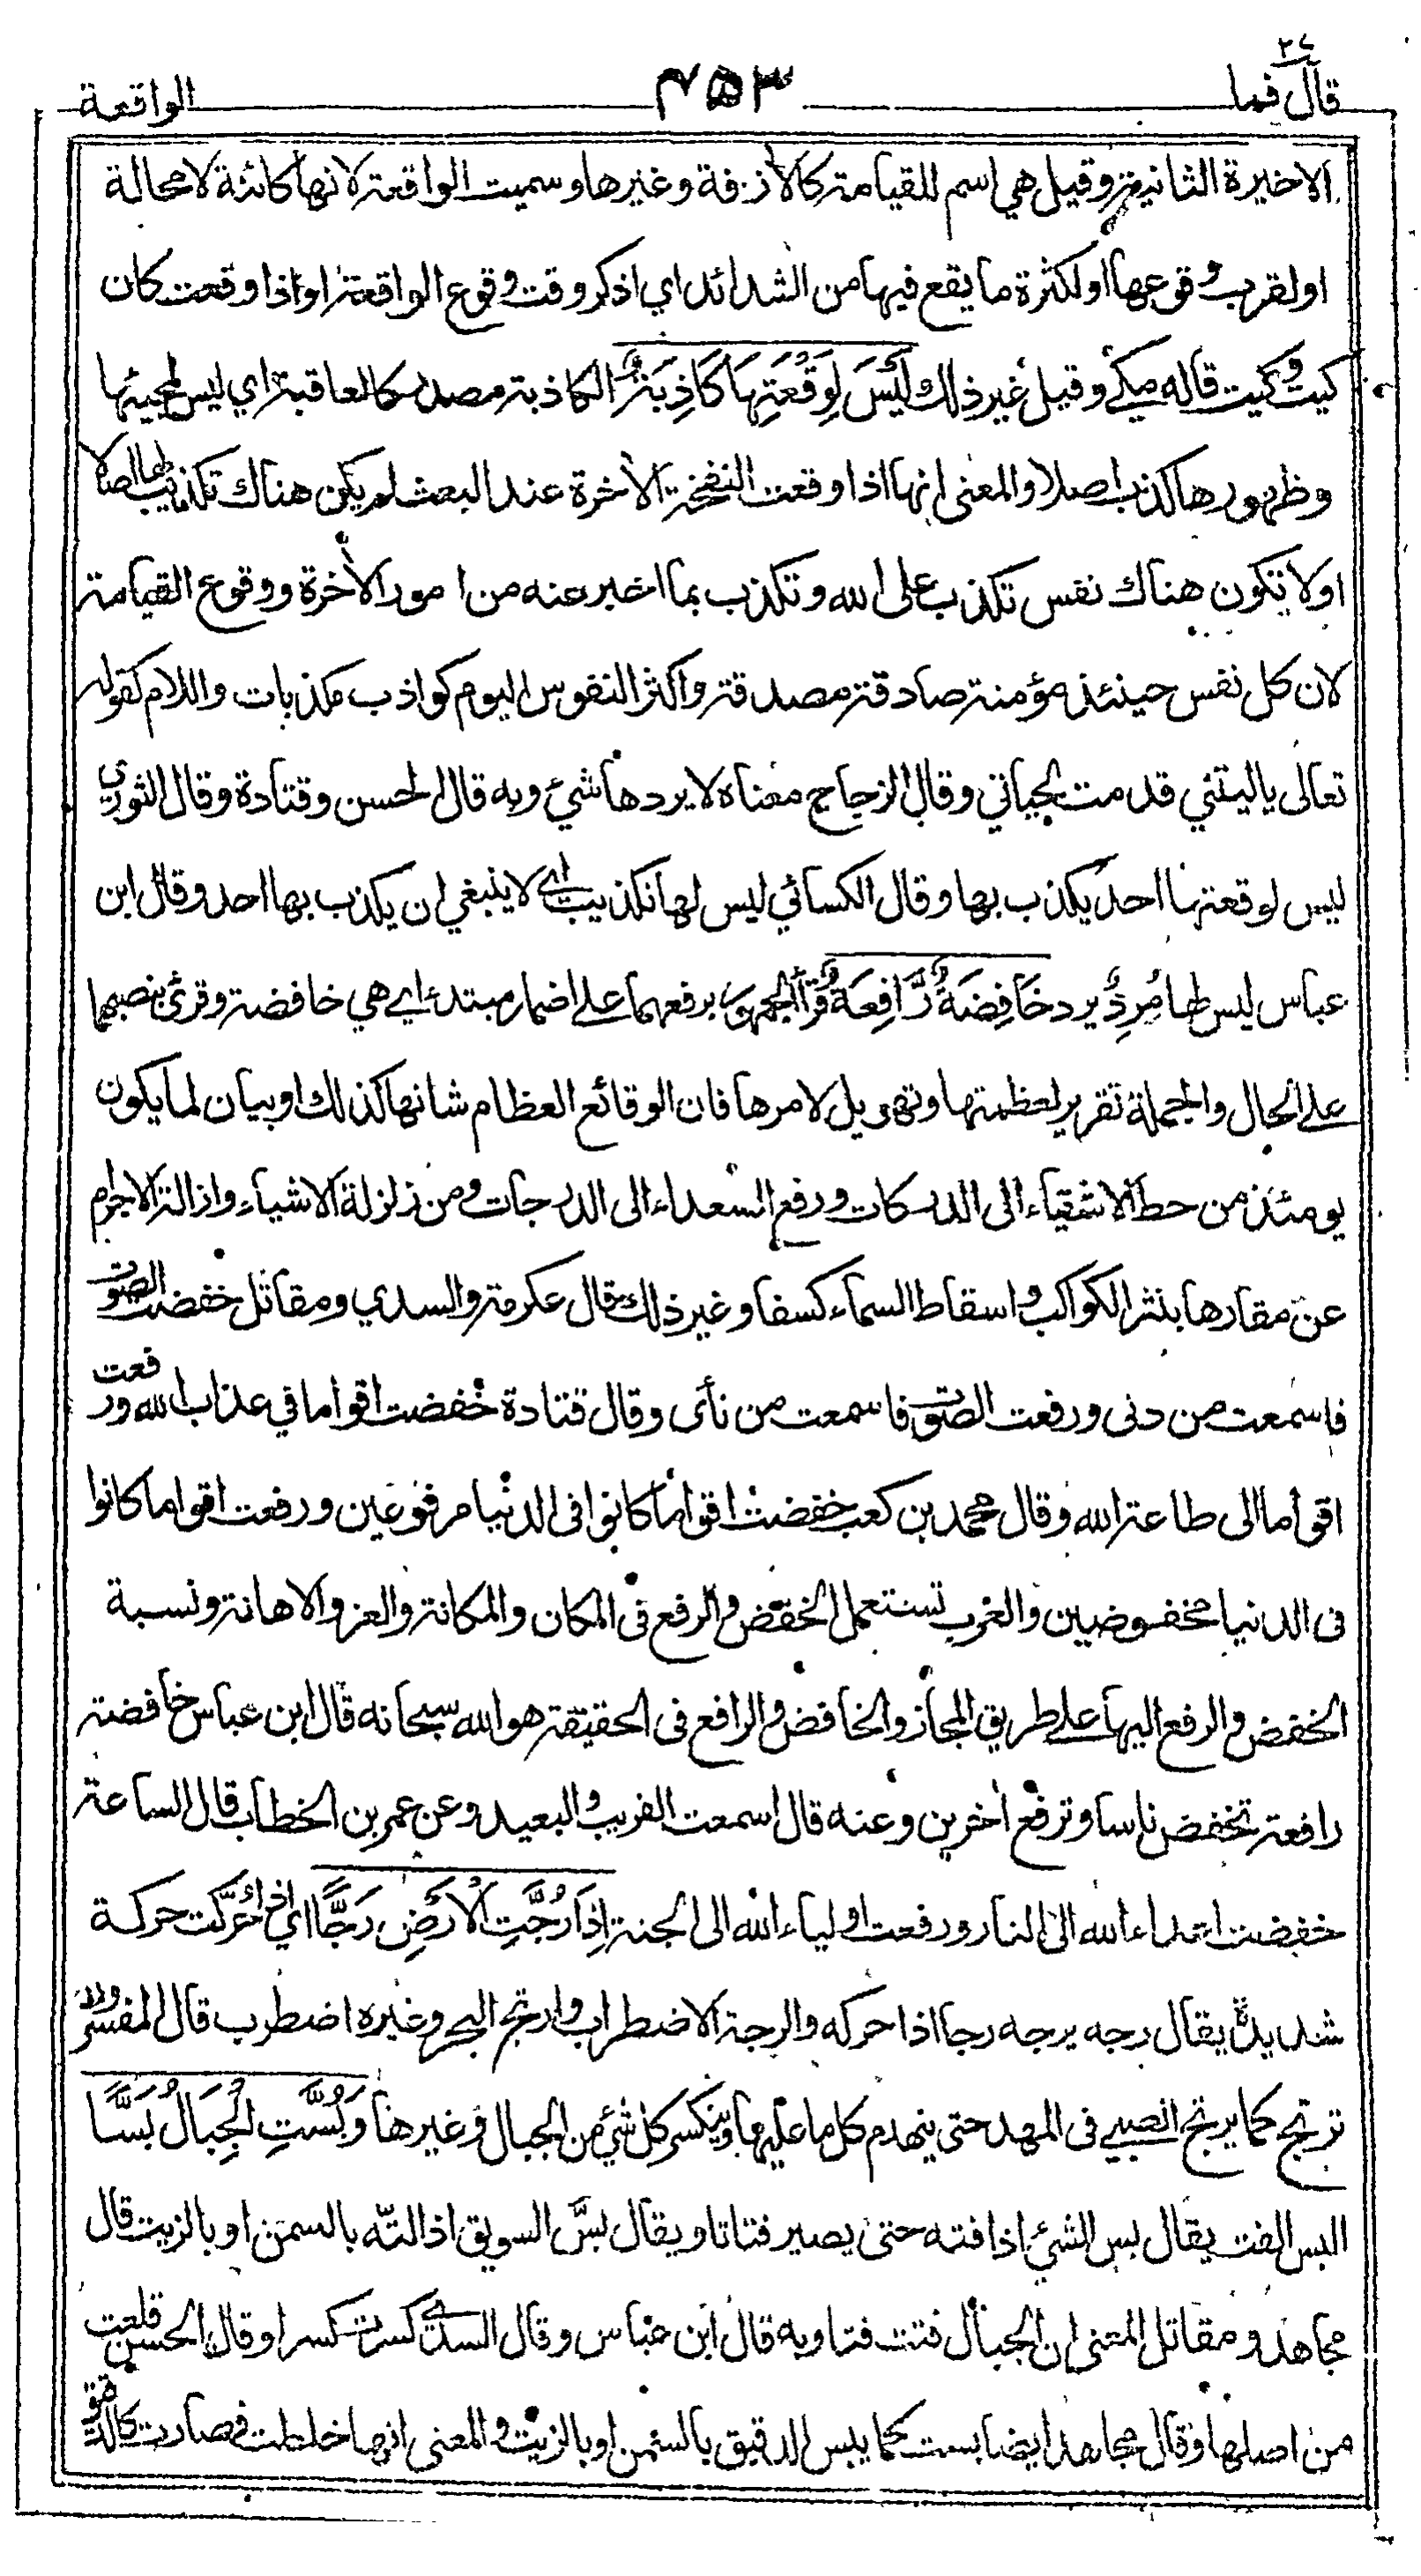 ٢٧
قال فما ٤٥٣ الواقعة
الاخيرة الثانية وقيل هي اسم للقيامة كالأزفة وغيرها وسميت الواقعة لانها كائنة لا محالة
او لقرب وقوعها او لكثرة ما يقع فيها من الشدائد اي اذكر وقت وقوع الواقعة او اذا وقعت كان
كيت وكيت قاله مكي وقيل غير ذلك لَيْسَ لِوَقْعَتِهَا كَاذِبَةٌ الكاذبة مصدر كالعاقبة اي ليس لمجيئها
وظهورها كذب اصلا والمعنى انها اذا وقعت النفخة الأخرة عند البعث لم يكن هناك تكذيب بها اصلا
اولا تكون هناك نفس تكذب على الله وتكذب بما اخبر عنه من امور الأخرة ووقوع القيامة
لان كل نفس حينئذ مؤمنة صادقة مصدقة واكثر النفوس اليوم كواذب مكذبات واللام كقوله
تعالى يا ليتني قدمت لحياتي وقال الزجاج معناه لا يردها شيئ وبه قال الحسن وقتادة وقال الثوري
ليس لوقعتها احد يكذب بها وقال الكسائي ليس لها تكذيب اي لا ينبغي ان يكذب بها احد وقال ابن
عباس ليس لها مُرِدٌّ يرد خَافِضَةٌ رَّافِعَةٌ قرأ الجمهور برفعهما على اضمار مبتدء اي هي خافضة وقرئ بنصبهما
على الحال والجملة تقرير لعظمتها وتهويل لامرها فان الوقائع العظام شانها كذلك او بيان لما يكون
يومئذ من حط الاشقياء الى الدركات ورفع السعداء الى الدرجات ومن زلزلة الاشياء وازالة الاجرام
عن مقارها بنثر الكواكب واسقاط السماء كسفا وغير ذلك قال عكرمة والسدي ومقاتل خفضت الصوت
فاسمعت من دنى ورفعت الصوت فاسمعت من نأى وقال قتادة خفضت اقواما في عذاب الله ورفعت
اقواما الى طاعة الله وقال محمد بن كعب خفضت اقواما كانوا فى الدنيا مرفوعين ورفعت اقواما كانوا
فى الدنيا مخفوضين والعرب تستعمل الخفض والرفع فى المكان والمكانة والعز والاهانة ونسبة
الخفض والرفع اليها على طريق المجاز والخافض والرافع فى الحقيقة هو الله سبحانه قال ابن عباس خافضة
رافعة تخفض ناسا وترفع اخرين وعنه قال اسمعت القريب والبعيد وعن عمر بن الخطاب قال الساعة
خفضت اعداء الله الى النار ورفعت اولياء الله الى الجنة اِذَا رُجَّتِ الْاَرْضُ رَجًّا اي اذا حُرّكت حركة
شديدة يقال رجه يرجه رجا اذا حركه والرجة الاضطراب وارتج البحر وغيره اضطرب قال المفسرون
ترتج كما يرتج الصبي فى المهد حتى ينهدم كل ما عليها وينكسر كل شيئ من الجبال وغيرها وَبُسَّتِ الْجِبَالُ بَسًّا
البس الفت يقال بس الشئ اذا فته حتى يصير فتاتا ويقال بسّ السويق اذا لتّه بالسمن او بالزيت قال
مجاهد ومقاتل المعنى ان الجبال فتت فتا وبه قال ابن عباس وقال السدي كسرت كسرا وقال الحسن قلعت
من اصلها وقال مجاهد ايضا بست كما يبس الدقيق بالسمن او بالزيت والمعنى انها خلطت فصارت كالدقيق